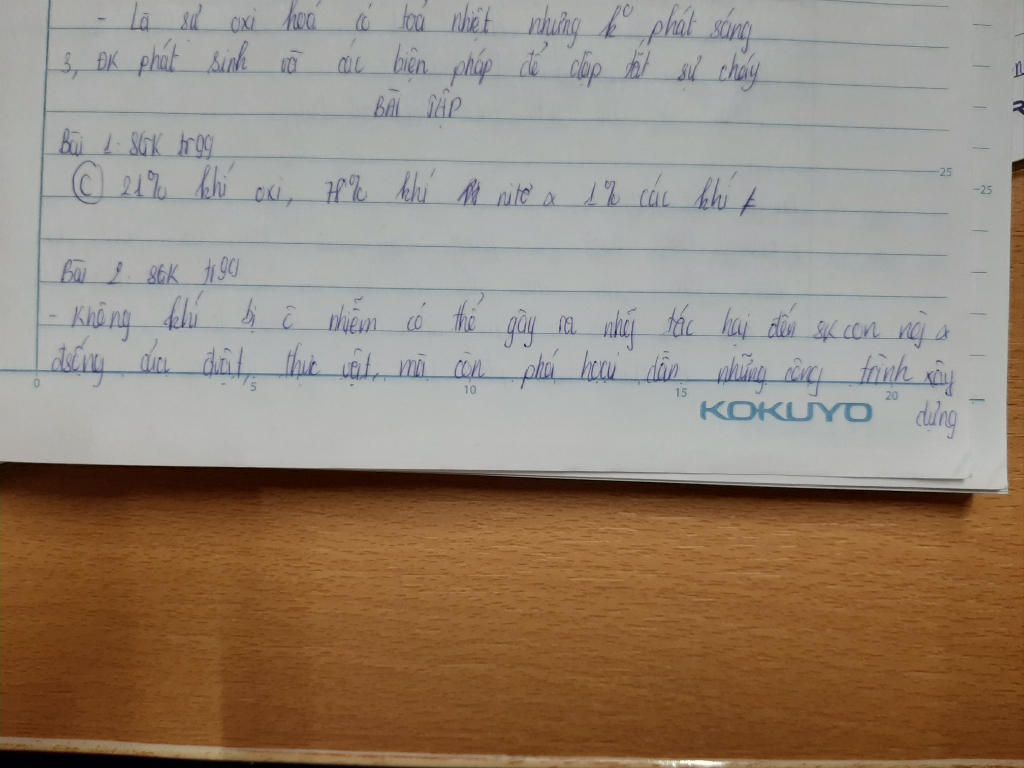 - Là sự oxi hoá có toả nhiệt nhưng k° phát sáng
3, ĐK phát sinh và các biện pháp để dập tắt sự cháy
BÀI TẬP
Bài 1. SGK tr99
25
25
C 21% khí oxi, 78% khí nitơ & 1% các khí ≠
Bài 2. SGK tr99
- Không khí bị ô nhiễm có thể gây ra nhg̃ tác hại đến sk con ng̀ &
đsống của đvật, thực vật, mà còn phá hoại dần những công trình xây
0 5 10 15 20
KOKUYO
dựng